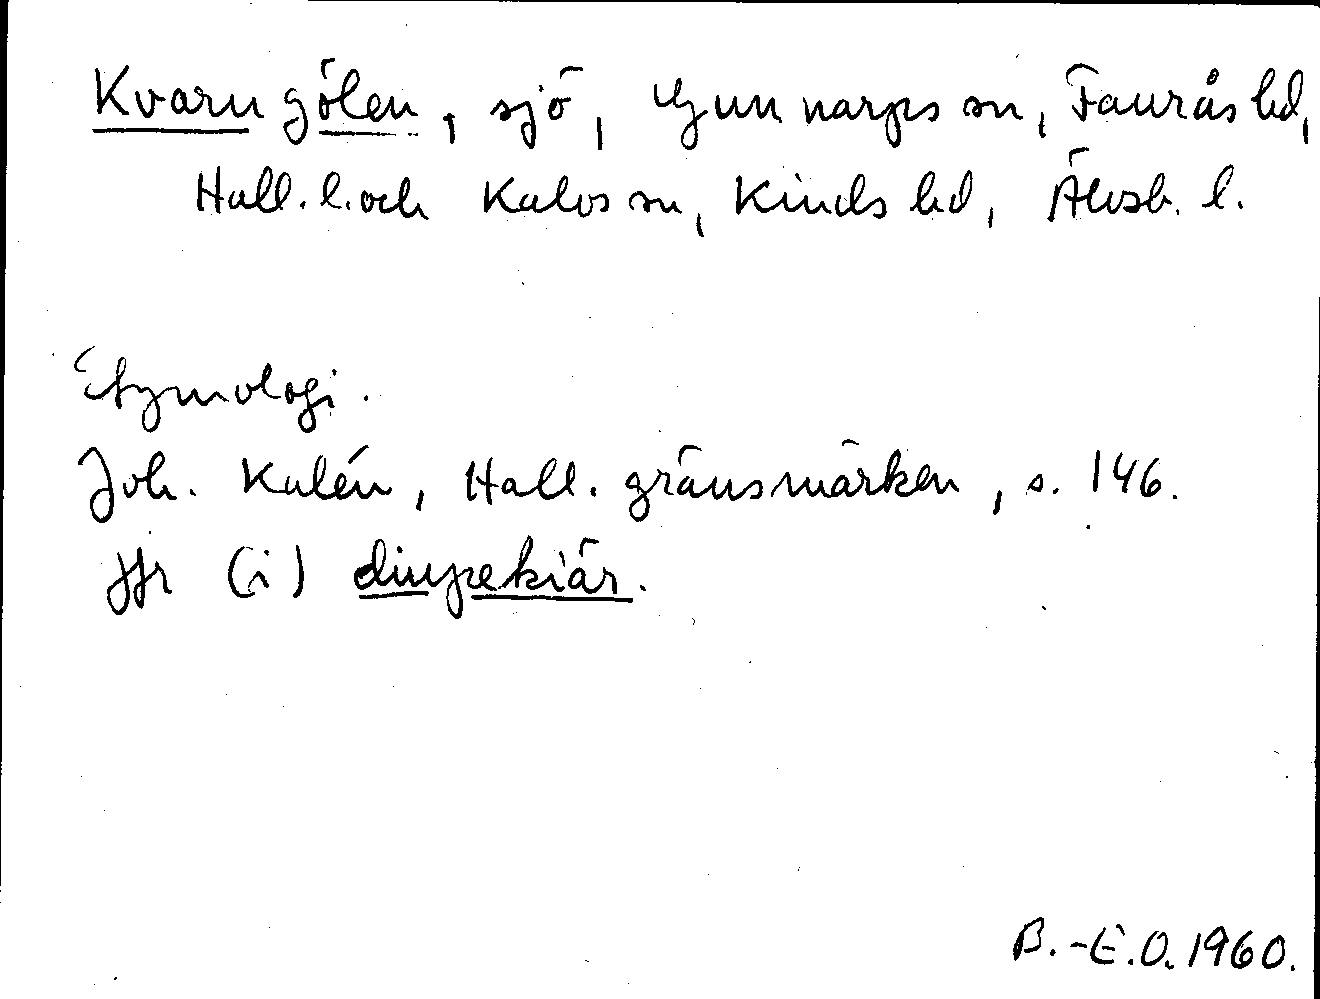 Kvarngölen, sjö, Gunnarps sn, Faurås hd,
Hall. l. och Kalvs sn, Kinds hd, Älvsb. l.
Etymologi.
Joh. Kalén, Hall. gränsmärken, s. 146.
Jfr (i) diupekiär.
B.-E.O. 1960.